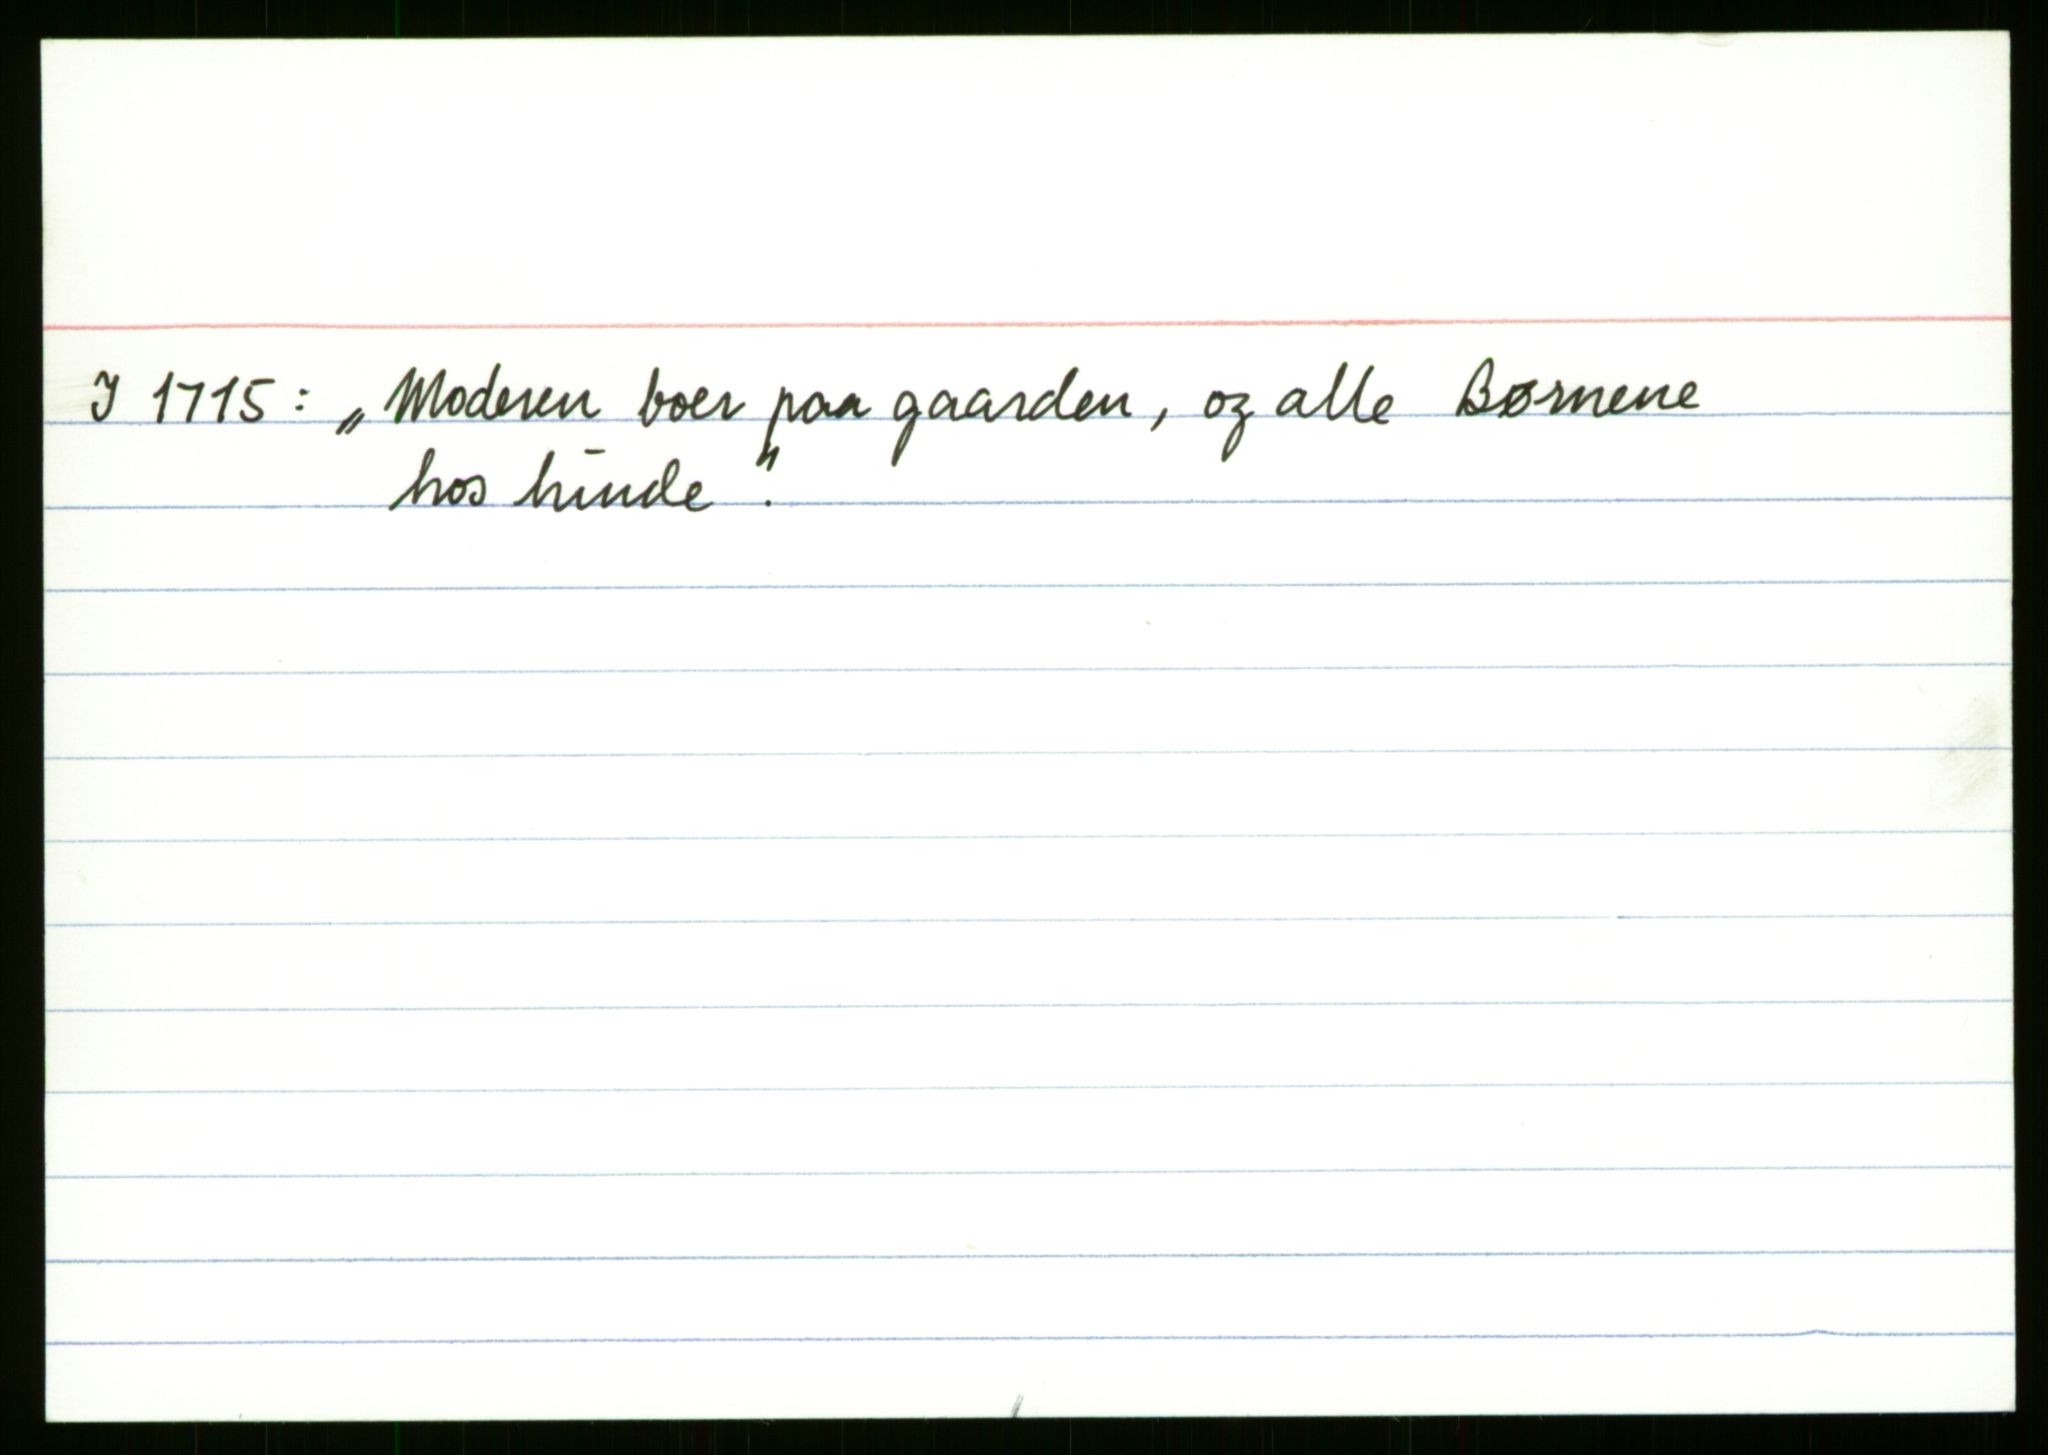 I 1715: „Moderen boer paa gaarden, og alle Børnene
hos hūnde".